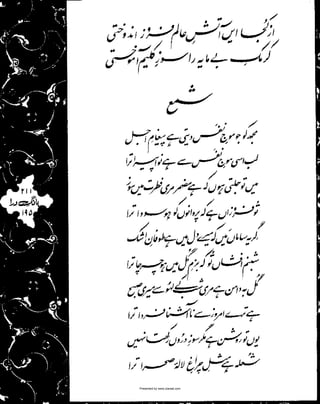 از کجا ایں آتشِ عالم فروز اندوختی
کرمکِ بے مایہ را سوزِ کلیم آموختی
شمع
مجھ کو جو موجِ نفس دیتی ہے پیغامِ اجل
لب اسی موجِ نفس سے ہے نوا پیرا ترا
میں تو جلتی ہوں کہ ہے مضمر مری فطرت میں سوز
تو فروزاں ہے کہ پروانوں کو ہو سودا ترا
گریہ ساماں میں کہ میرے دل میں ہے طوفانِ اشک
شبنم افشاں تو کہ بزمِ گل میں ہو چرچا ترا
گل بہ دامن ہے مری شب کے لہو سے میری صبح
ہے ترے امروز سے ناآشنا فردا ترا
یوں تو روشن ہے مگر سوزِ دروں رکھتا نہیں
شعلہ ہے مثلِ چراغِ لالۂ صحرا ترا
۲۱۱
بانگِ درا
۱۹۵
Presented by www.ziaraat.com